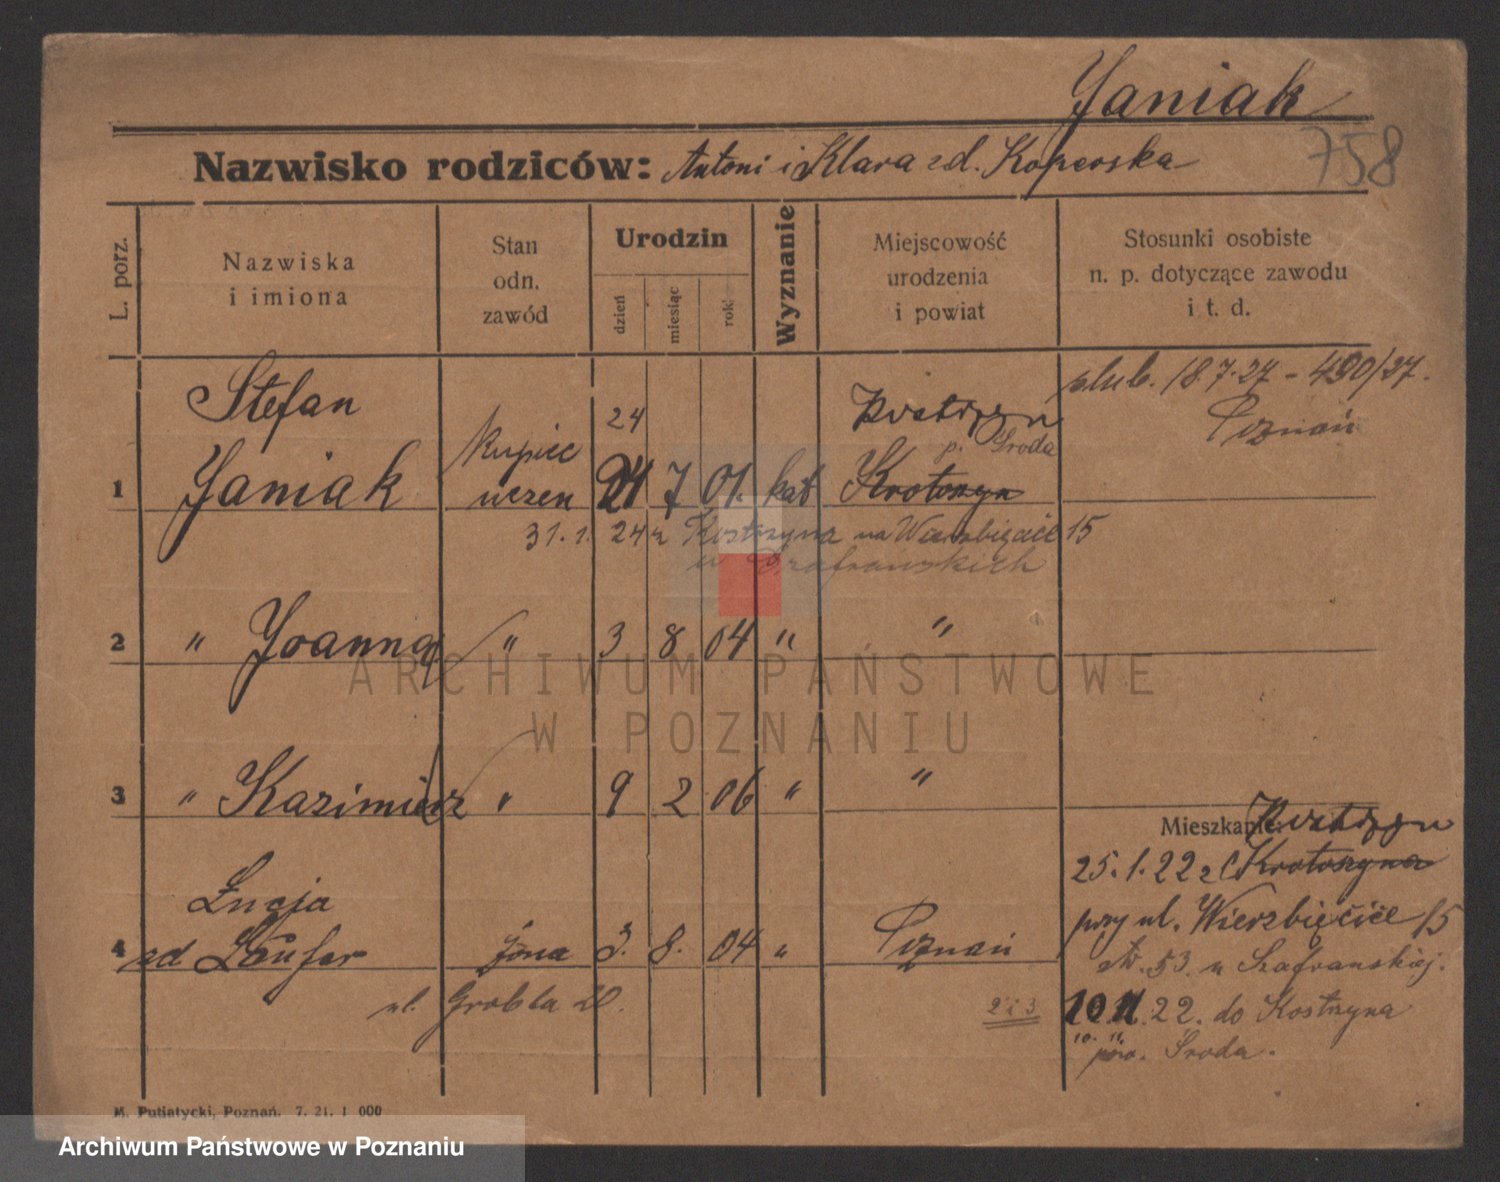 Janiak
758
Nazwisko rodziców: Antoni i Klara zd. Koperska
L. porz.
Nazwiska
i imiona
Stan
odn.
zawód
Urodzin
dzień
miesiąc
rok
Wyznanie
Miejscowość
urodzenia
i powiat
Stosunki osobiste
n. p. dotyczące zawodu
i t. d.
ślub. 18.7.27 - 490/27.
Poznań
Stefan
Kupiec
24
Kostrzyn
p. Środa
1 Janiak uczeń 24 7 01. kat Krotoszyn
31. 1. 24 z Kostrzyna na Wierzbięcice 15
u Szafrańskich
2 " Joanna " 3 8 04 " "
3 " Kazimierz " 9 2 06 " "
Mieszkanie: Kostrzyn
25.1.22 z Krotoszyna
Łucja
przy ul. Wierzbięcice 15
4 zd Laufer żona 3. 8. 04 " Poznań
53. u Szafrańskiej.
ul. Grobla 20.
2 i 3
10 11 22. do Kostrzyna
10. 11.
pow. Środa.
M. Putiatycki, Poznań. 7. 21. 1 000
ARCHIWUM PAŃSTWOWE
W POZNANIU
Archiwum Państwowe w Poznaniu